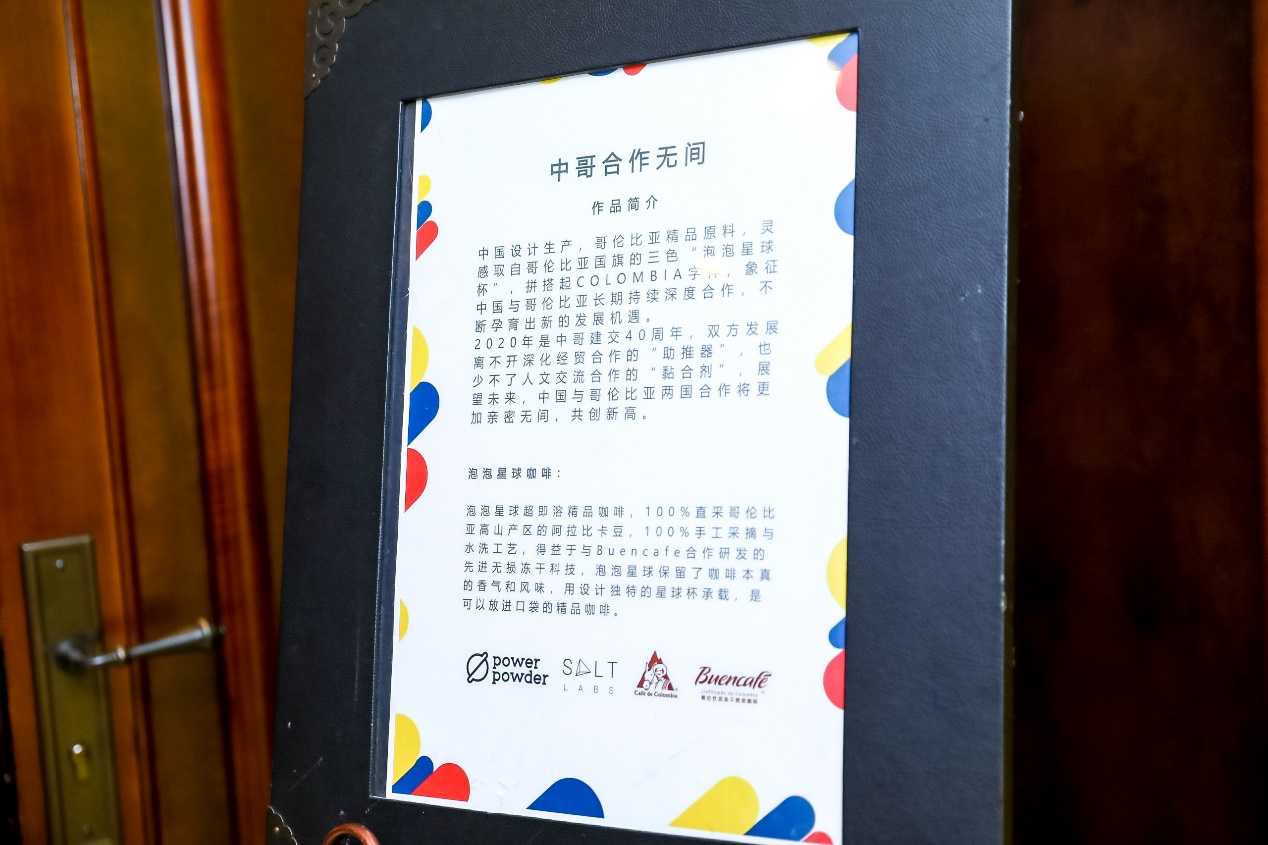 中哥合作无间
作品简介
中国设计生产，哥伦比亚精品原料，灵
感取自哥伦比亚国旗的三色“泡泡星球
杯”，拼搭起COLOMBIA字样，象征
中国与哥伦比亚长期持续深度合作，不
断孕育出新的发展机遇。
2020年是中哥建交40周年，双方发展
离不开深化经贸合作的“助推器”，也
少不了人文交流合作的“黏合剂”，展
望未来，中国与哥伦比亚两国合作将更
加亲密无间，共创新高。
泡泡星球咖啡：
泡泡星球超即溶精品咖啡，100%直采哥伦比
亚高山产区的阿拉比卡豆，100%手工采摘与
水洗工艺，得益于与Buencafe合作研发的
先进无损冻干科技，泡泡星球保留了咖啡本真
的香气和风味，用设计独特的星球杯承载，是
可以放进口袋的精品咖啡。
power
powder
SALT
LABS
Café de Colombia
Buencafé